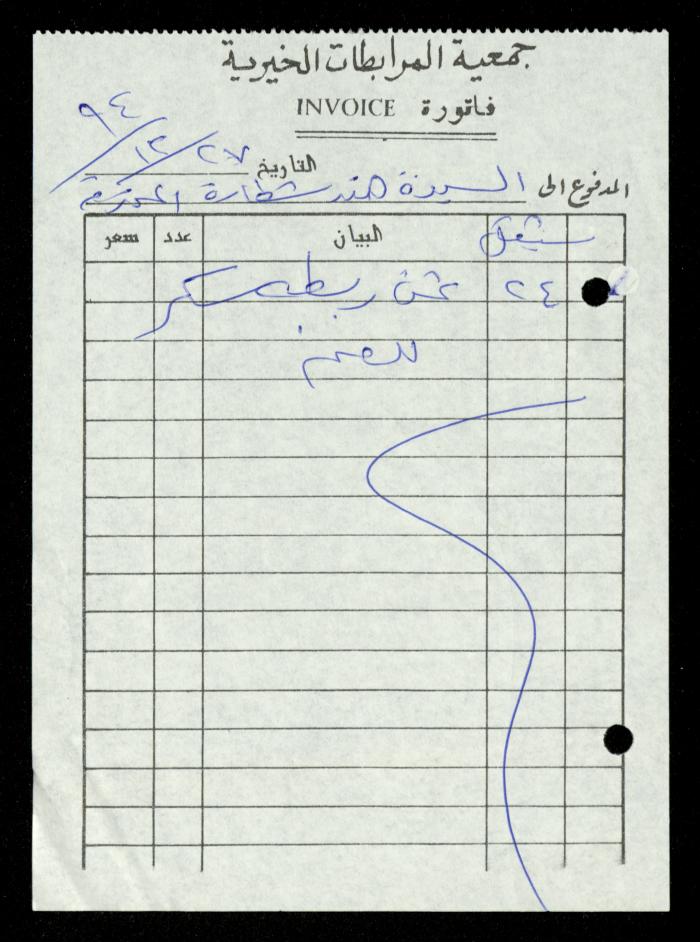 جمعية المرابطات الخيرية
فاتورة INVOICE
التاريخ ٢٧/١٢/٩٤
المدفوع الى السيدة هند شطارة المحترمة
شيقل البيان عدد سعر
٢٤ ثمن ربطة سكر